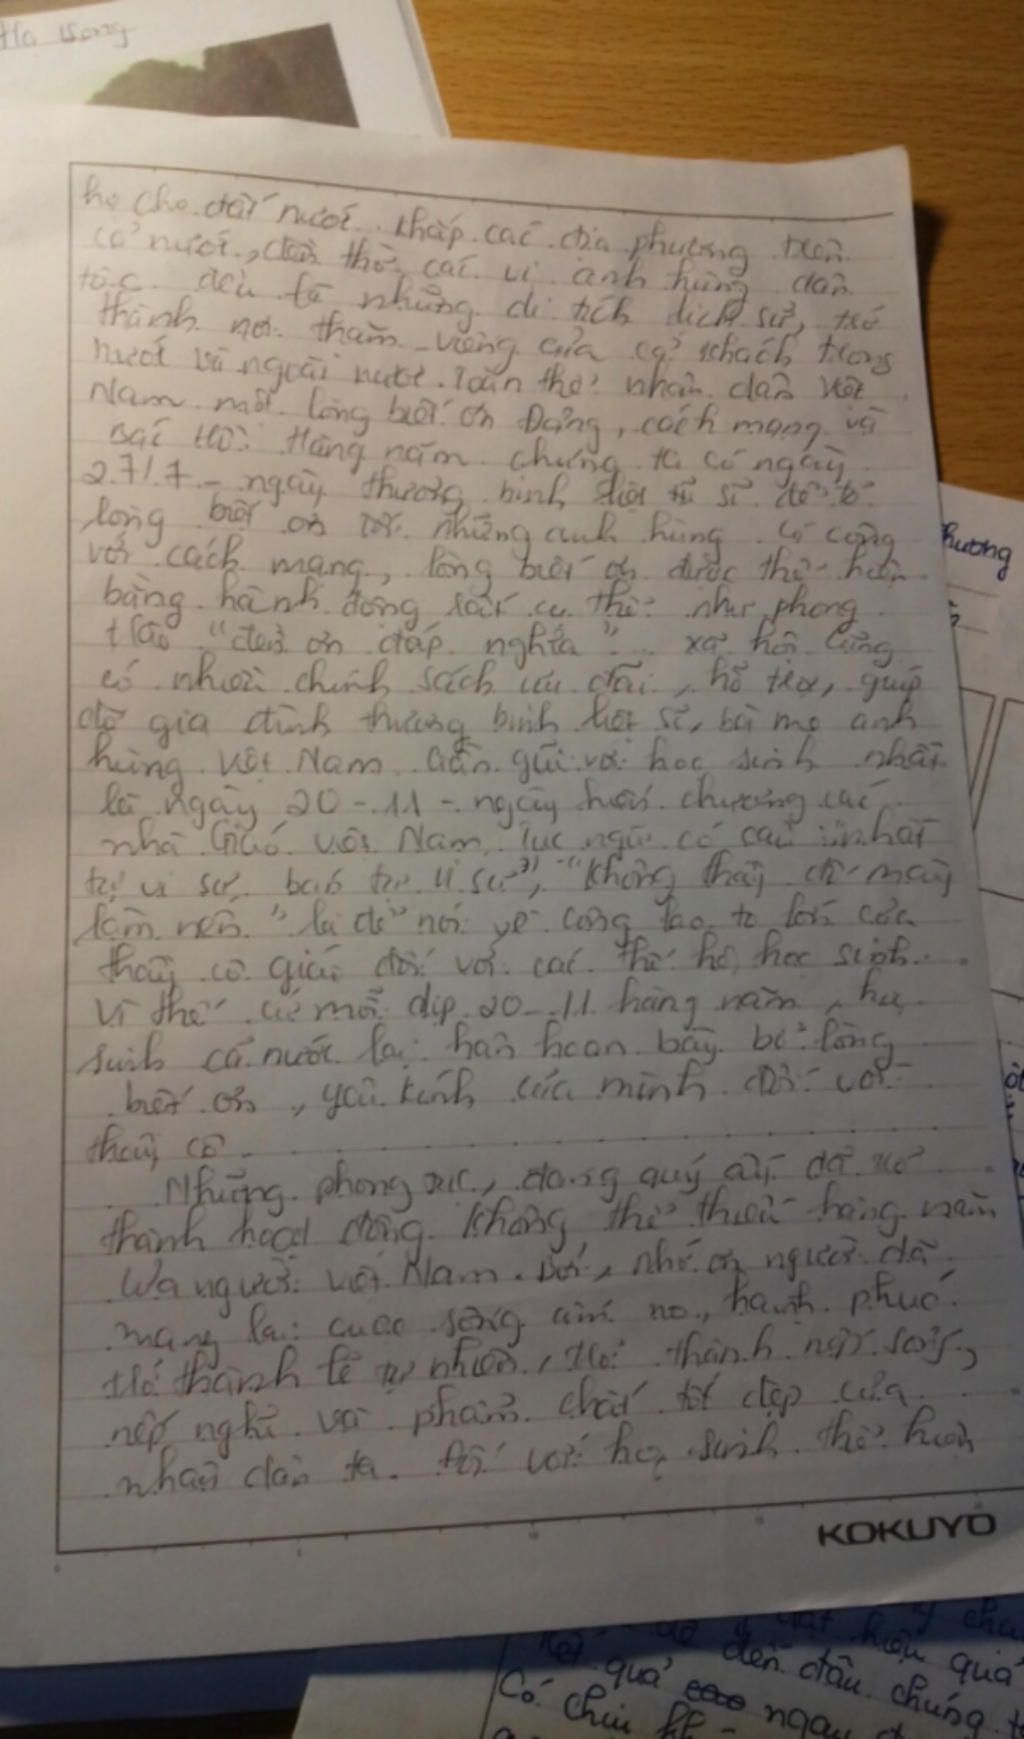 Ha Long
họ cho đất nước. Khắp các địa phương trên
cả nước, đền thờ các vị anh hùng dân
tộc đều là những di tích lịch sử, trở
thành nơi thăm viếng của cả khách trong
nước và ngoài nước. Toàn thể nhân dân Việt
Nam một lòng biết ơn Đảng, cách mạng và
Bác Hồ. Hàng năm chúng ta có ngày
27/7 - ngày thương binh liệt sĩ để tỏ
lòng biết ơn tới những anh hùng có công
với cách mạng, lòng biết ơn được thể hiện
bằng hành động rất cụ thể như phong
trào "đền ơn đáp nghĩa" xã hội cũng
có nhiều chính sách ưu đãi, hỗ trợ, giúp
đỡ gia đình thương binh liệt sĩ, bà mẹ anh
hùng Việt Nam. Gần gũi với học sinh nhất
là ngày 20-11 - ngày hiến chương các
nhà Giáo Việt Nam, tục ngữ có câu "nhất
tự vi sư, bán tự vi sư", "Không thầy đố mày
làm nên" là để nói về công lao to lớn của
thầy cô giáo đối với các thế hệ học sinh.
Vì thế cứ mỗi dịp 20-11 hàng năm, học
sinh cả nước lại hân hoan bày tỏ lòng
biết ơn, yêu kính của mình đối với
thầy cô
Những phong tục, đáng quý ấy đã trở
thành hoạt động không thể thiếu hàng năm
của người Việt Nam. Bởi, nhớ ơn người đã
mang lại cuộc sống ấm no, hạnh phúc
trở thành lẽ tự nhiên, trở thành lối sống,
nếp nghĩ và phẩm chất tốt đẹp của
nhân dân ta. Đối với học sinh thể hiện
KOKUYO
hương
hiệu quả
Kết quả đến đâu chúng t
Có ngay